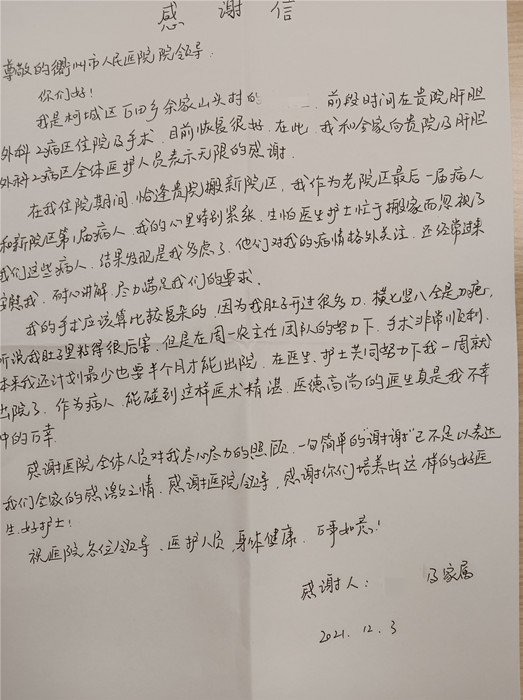 感谢信
尊敬的衢州市人民医院院领导:
你们好!
我是柯城区万田乡余家山头村的 前段时间在贵院肝胆
外科2病区住院及手术.目前恢复很好.在此,我和全家向贵院及肝胆
外科2病区全体医护人员表示无限的感谢.
在我住院期间,恰逢贵院搬新院区,我作为老院区最后一届病人
和新院区第1届病人,我的心里特别紧张.生怕医生护士忙于搬家而忽视了
我们这些病人.结果发现是我多虑了.他们对我的病情格外关注.还经常过来
安慰我.耐心讲解.尽力满足我们的要求.
我的手术应该算比较复杂的,因为我肚子开过很多刀.横七竖八全是刀疤,
听说我肚子里粘得很厉害.但是在周一农主任团队的努力下.手术非常顺利.
本来我还计划最少也要半个月才能出院.在医生、护士共同努力下我一周就
出院了.作为病人,能碰到这样医术精湛.医德高尚的医生真是我不幸
中的万幸.
感谢医院全体人员对我尽心尽力的照顾.一句简单的“谢谢”已不足以表达
我们全家的感激之情.感谢医院领导,感谢你们培养出这样的好医
生.好护士!
祝医院各位领导、医护人员,身体健康.万事如意!
感谢人: 及家属
2021. 12. 3